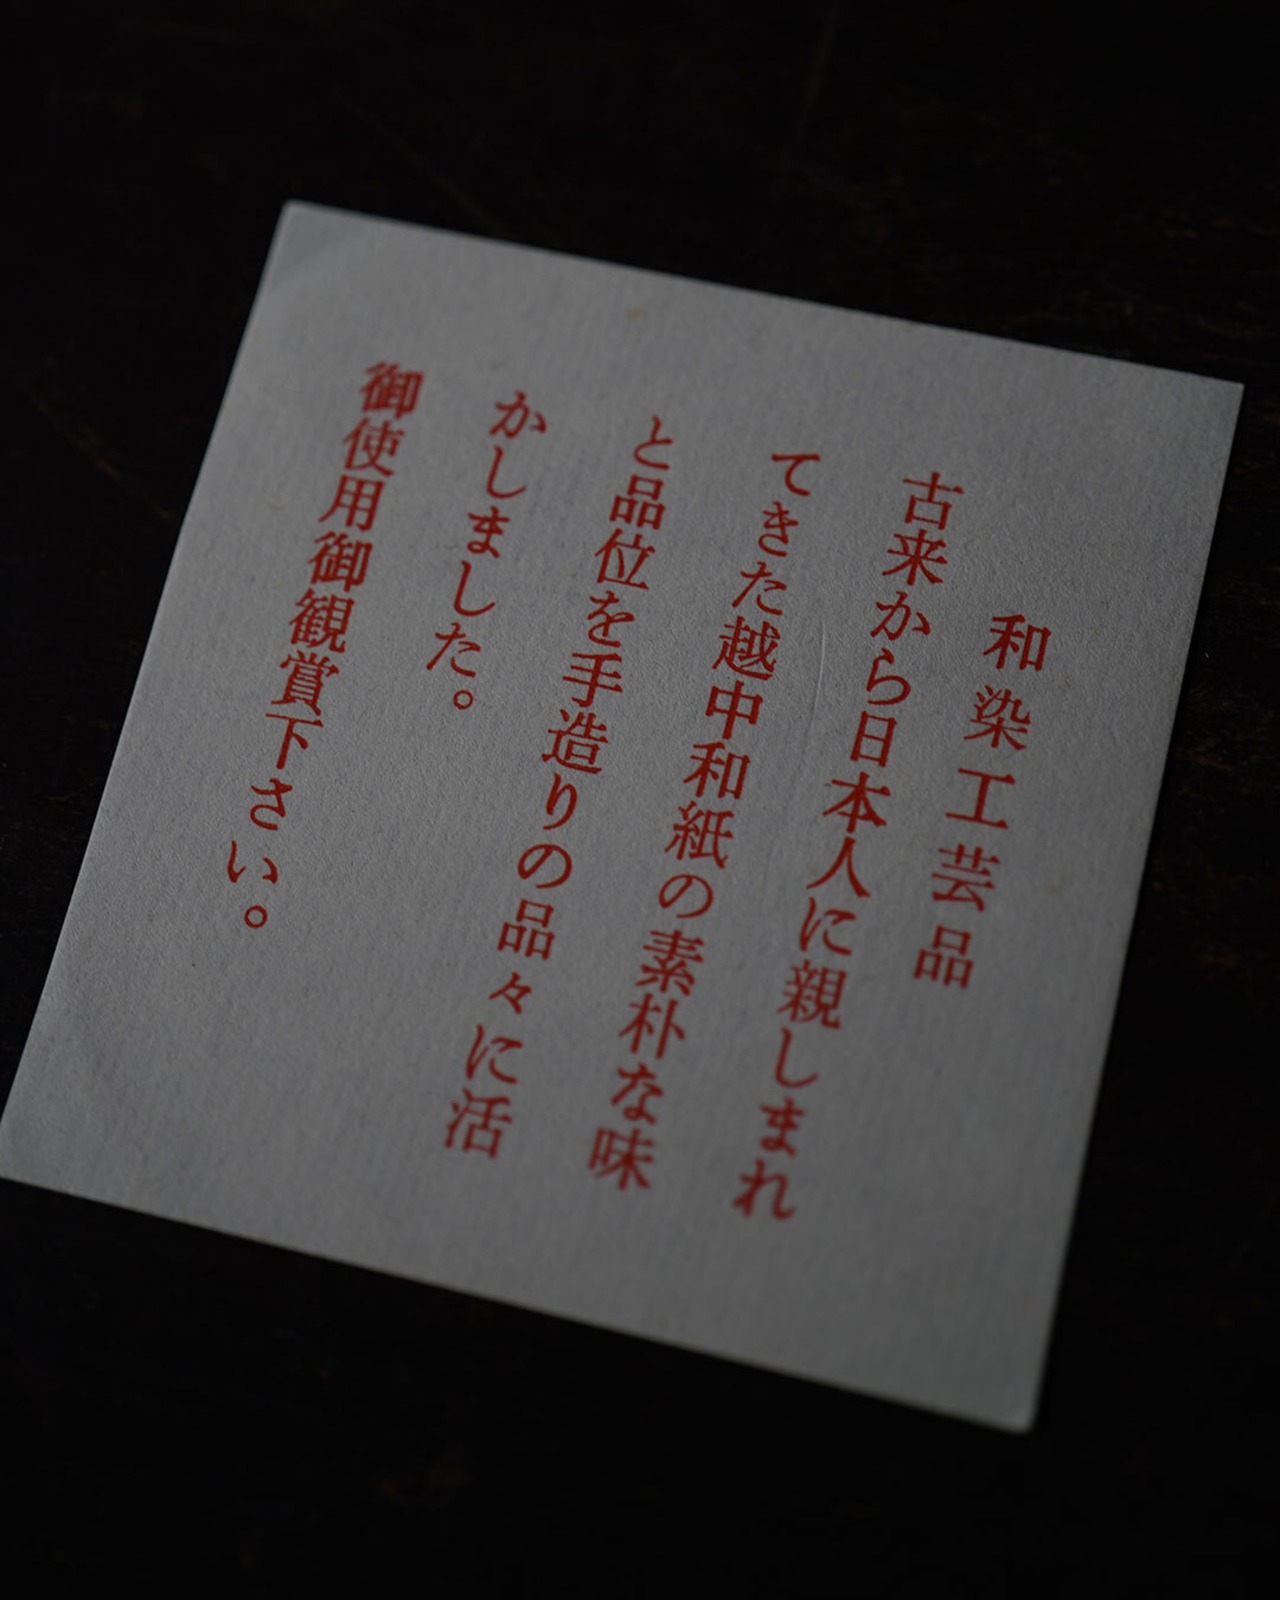 和染工芸品
古来から日本人に親しまれ
てきた越中和紙の素朴な味
と品位を手造りの品々に活
かしました。
御使用御観賞下さい。